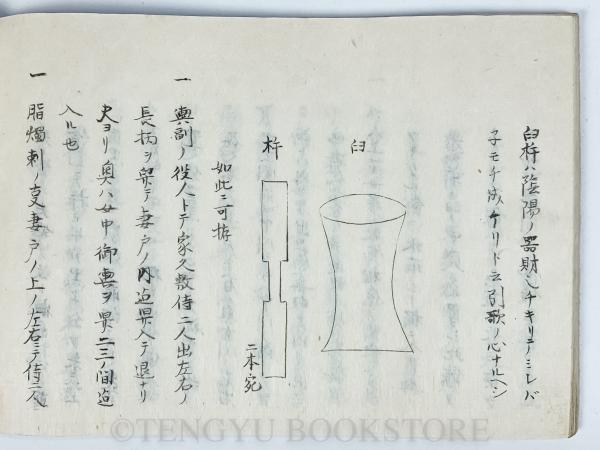 臼杵ハ陰陽ノ器財也チキリコノミレバ
子モチ成ケリト云引歌ノ心ナルヘシ
臼
杵
二本宛
如此ニ可拵
一 輿副ノ役人トテ家久敷侍二人出左右ノ
長柄ヲ舁テ妻戸ノ内迠舁入テ退ナリ
夫ヨリ奥ハ女中御輿ヲ舁二三ノ間迠
入ル也
一 脂燭刺ノ叓妻戸ノ上ノ左右ニテ侍二人
©TENGYU BOOKSTORE